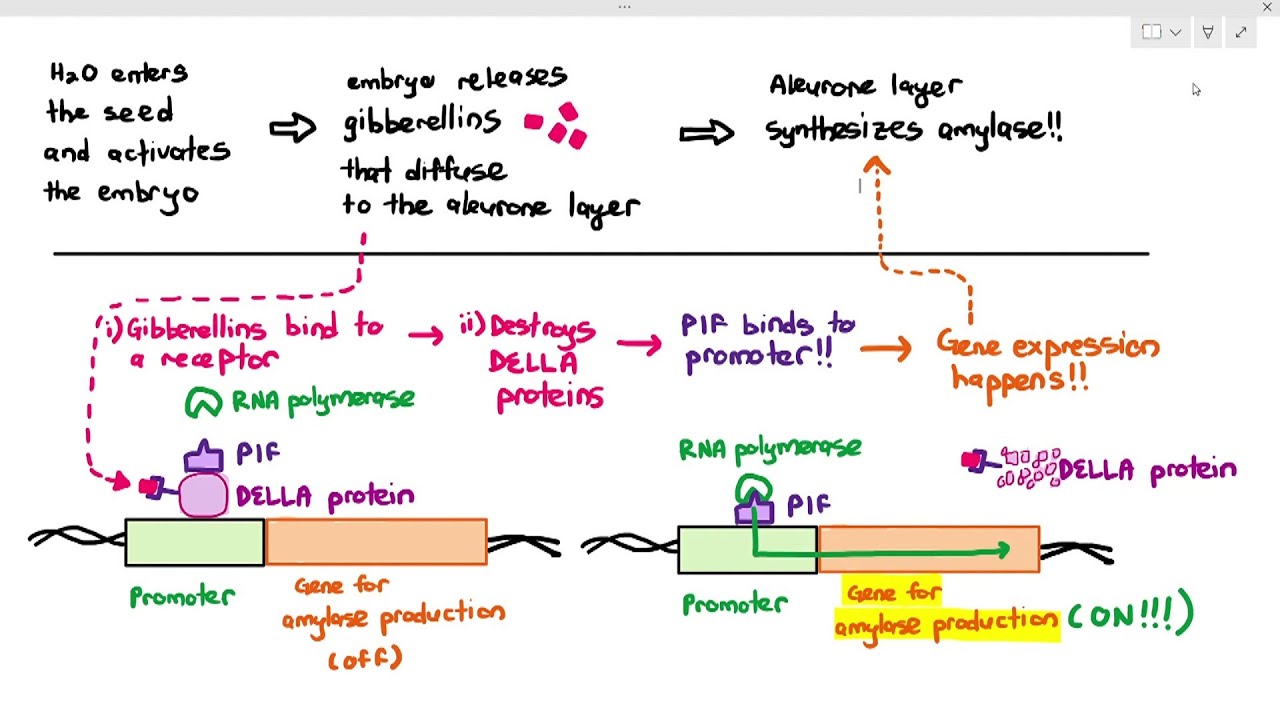 H2O enters
the seed
and activates
the embryo
embryo releases
gibberellins
that diffuse
to the aleurone layer
Aleurone layer
synthesizes amylase!!
i) Gibberellins bind to
a receptor
ii) Destroys
DELLA
proteins
PIF binds to
promoter!!
Gene expression
happens!!
RNA polymerase
PIF
DELLA protein
Promoter
Gene for
amylase production
(off)
RNA polymerase
PIF
DELLA protein
Promoter
Gene for
amylase production (ON!!!)